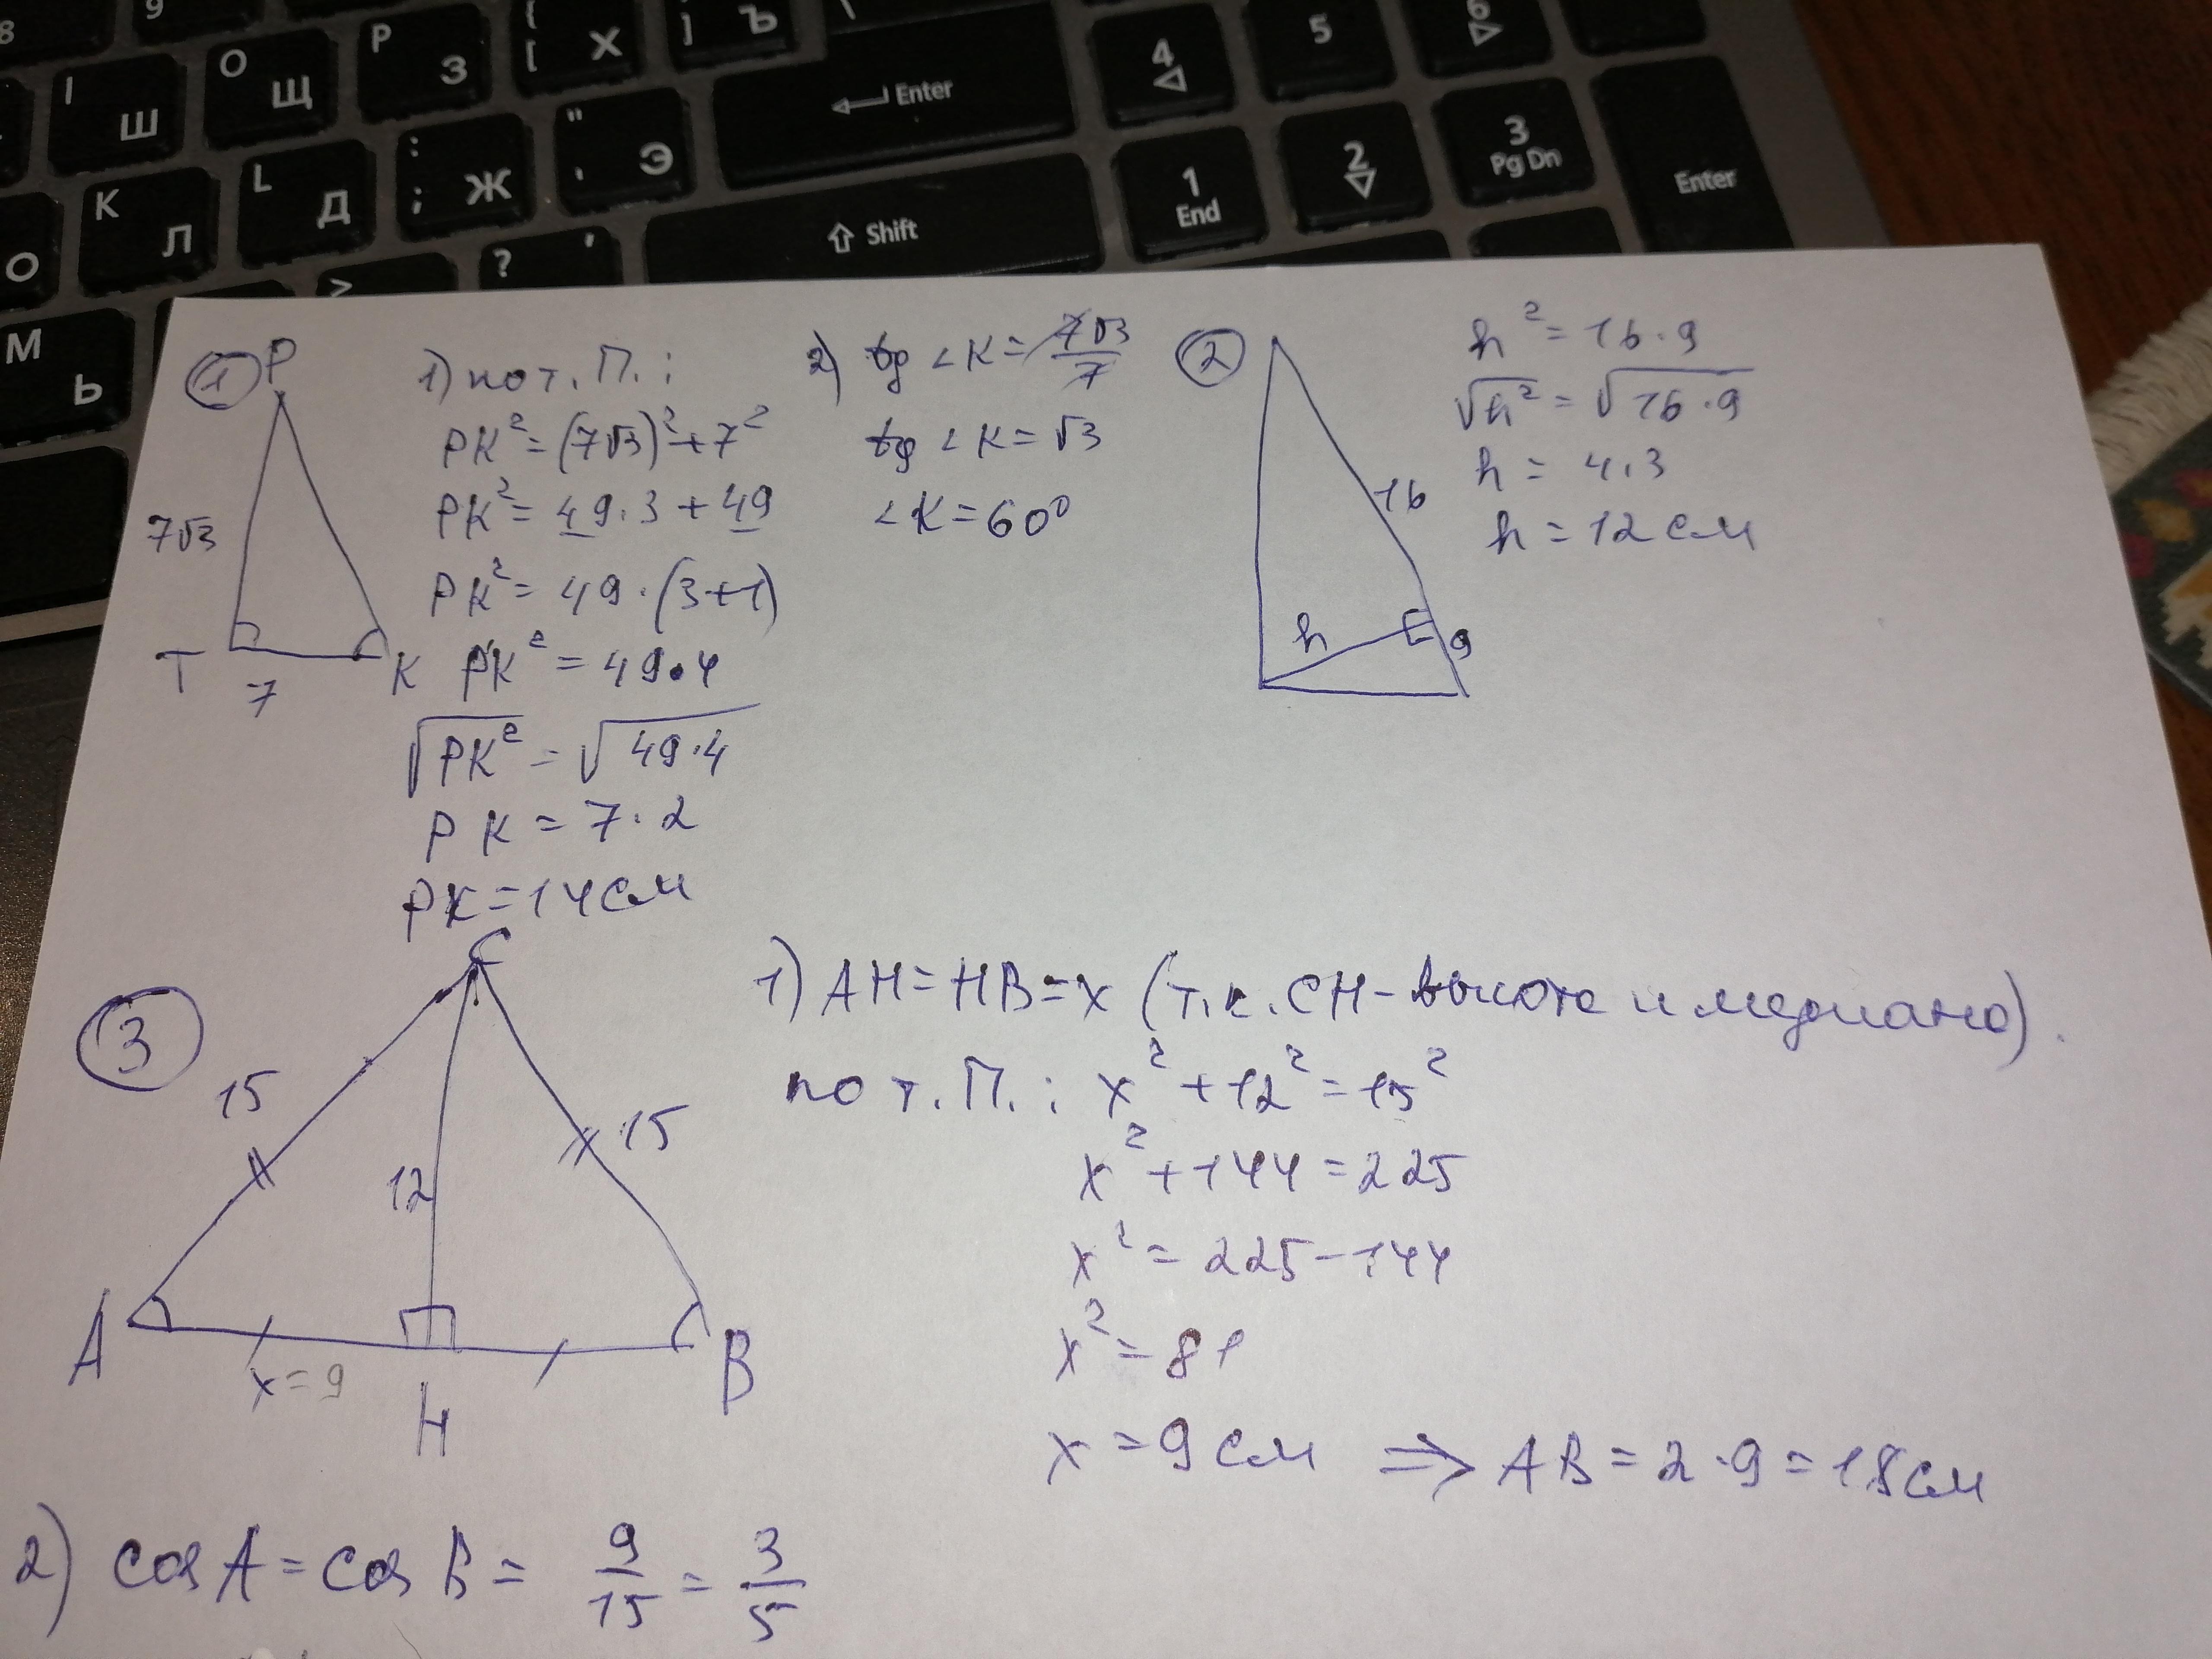 8
9
I Ш
O Щ
P З
[ { Х
] Ъ
\
Enter
4
5
6
K Л
L Д
: ; Ж
" ' Э
1 End
2
3 Pg Dn
Enter
O
>
?
Shift
M Ь
① P
7√3
T
7
K
1) по т. П. :
PK² = (7√3)² + 7²
PK² = 49·3 + 49
PK² = 49·(3+1)
PK² = 49·4
√PK² = √49·4
PK = 7·2
PK = 14 см
2) tg ∠K = 7√3/7
tg ∠K = √3
∠K = 60°
②
16
h
9
h² = 16·9
√h² = √16·9
h = 4·3
h = 12 см
③
C
15
15
12
A
x = 9
H
B
1) AH = HB = x (т.к. CH - высота и медиана).
по т. П. : x² + 12² = 15²
x² + 144 = 225
x² = 225 - 144
x² = 81
x = 9 см ⇒ AB = 2·9 = 18 см
2) cos A = cos B = 9/15 = 3/5